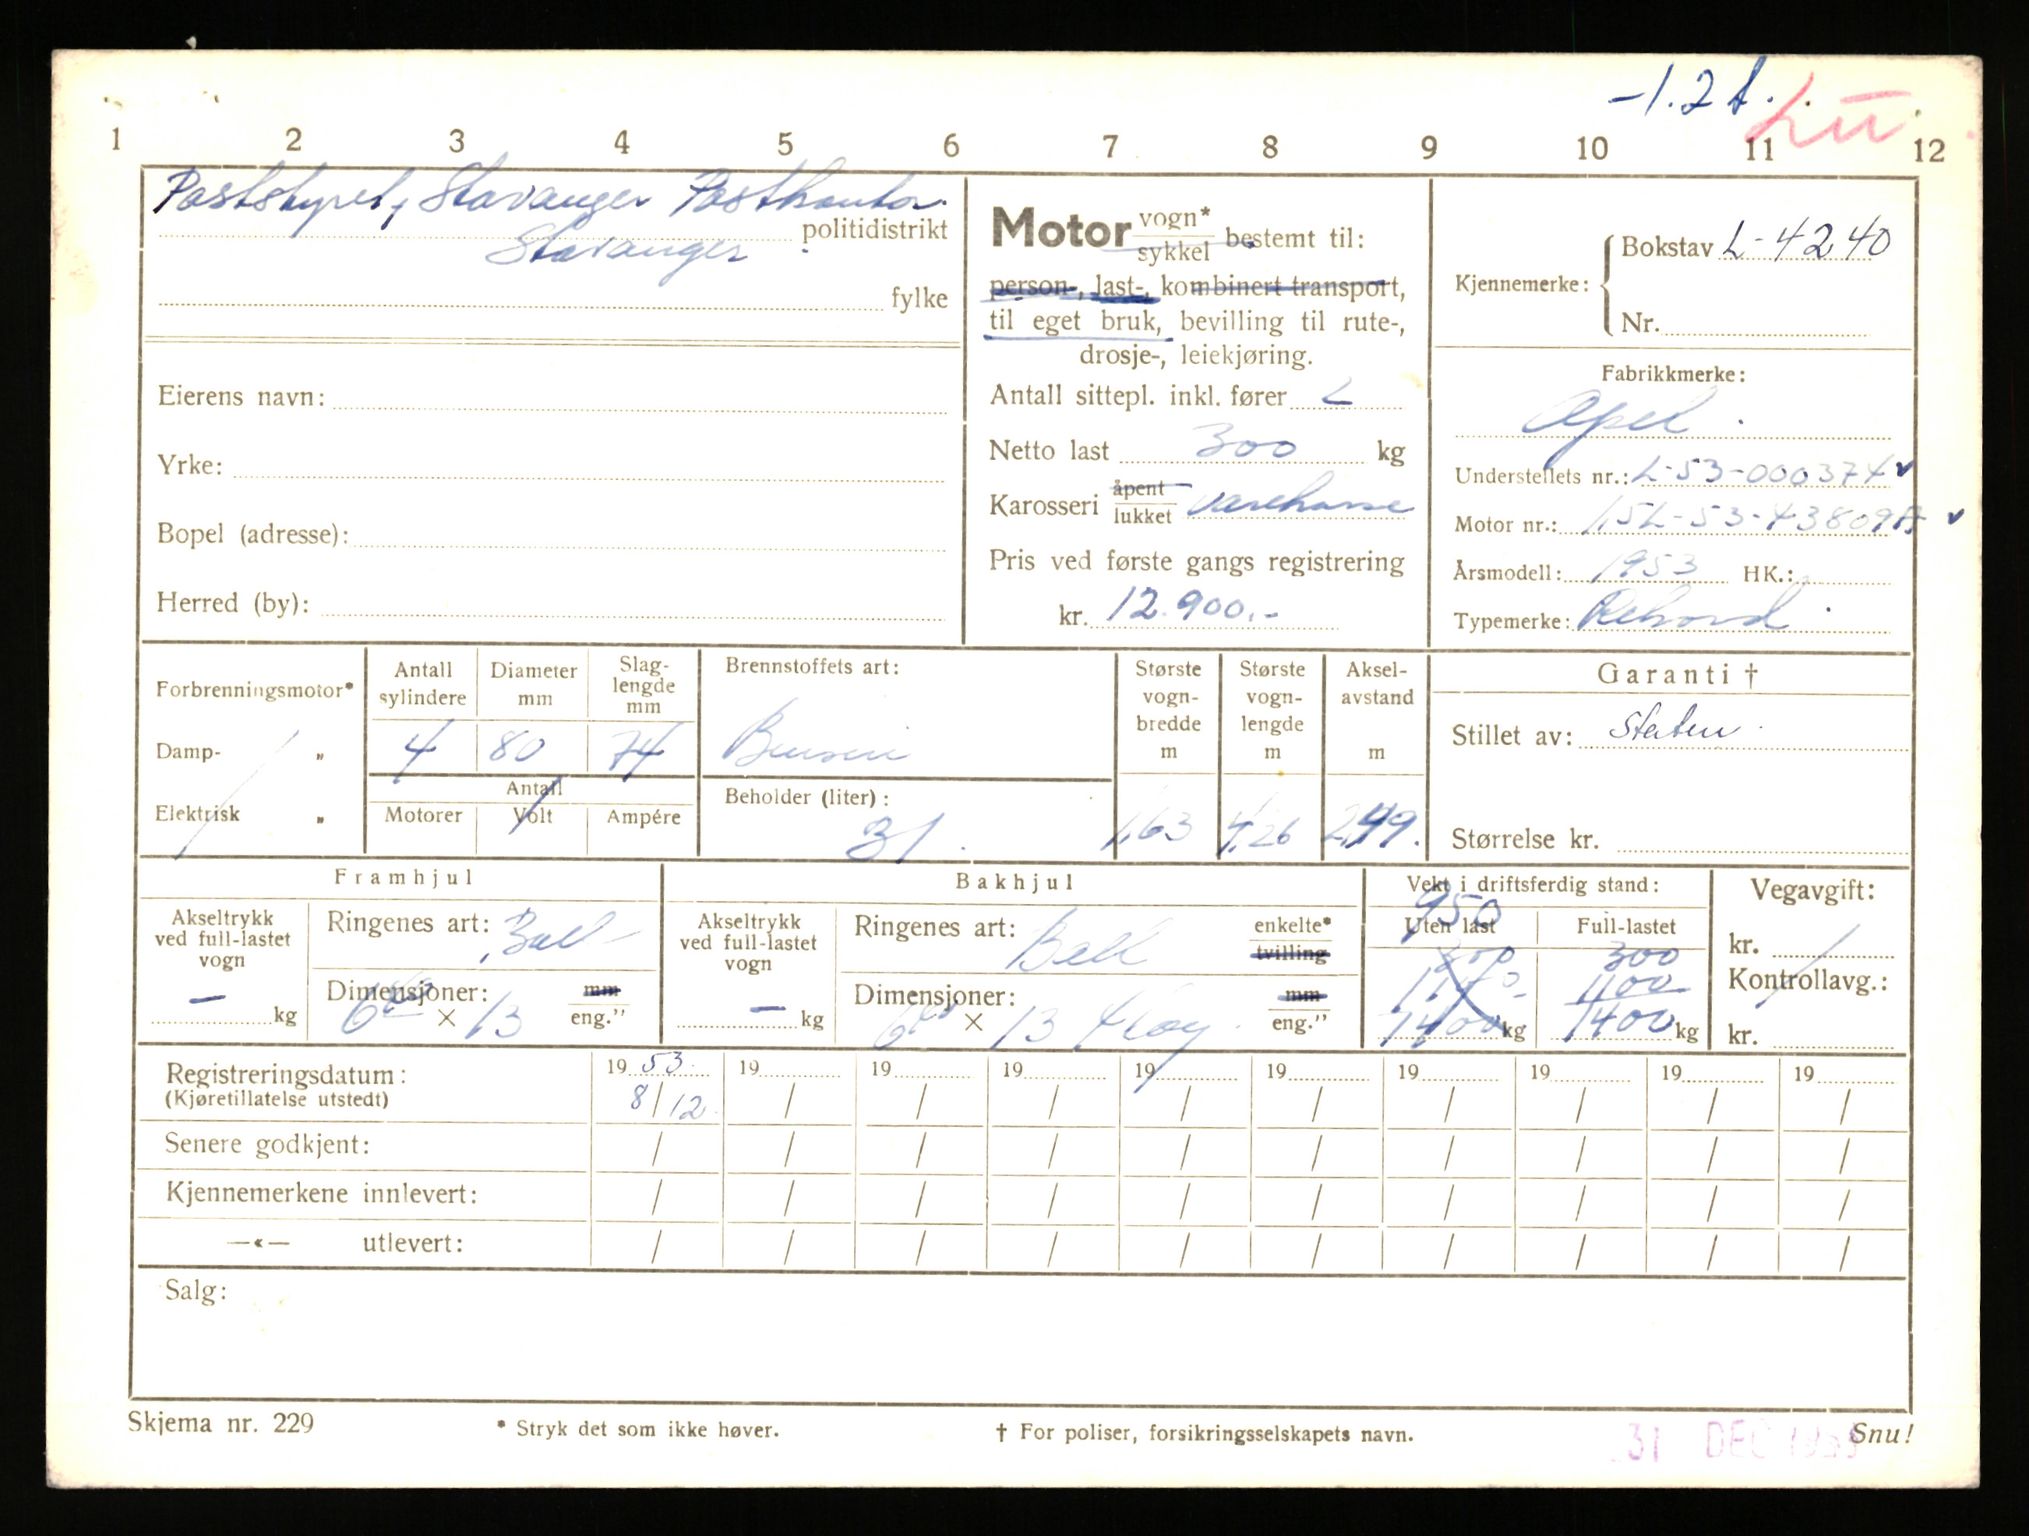 -1.2 t.
1 2 3 4 5 6 7 8 9 10 11 12
Poststyret, Stavanger Postkontor.
politidistrikt
Stavanger
fylke
Eierens navn:
Yrke:
Bopel (adresse):
Herred (by):
Motor vogn* sykkel bestemt til:
person-, last-, kombinert transport,
til eget bruk, bevilling til rute-,
drosje-, leiekjøring.
Antall sittepl. inkl. fører 2
Netto last 300 kg
Karosseri åpent lukket varekasse
Pris ved første gangs registrering
kr. 12.900.-
Kjennemerke: Bokstav L-4240
Nr.
Fabrikkmerke:
Opel
Understellets nr.: L-53-000374
Motor nr.: 1,5L-53-43809
Årsmodell: 1953 HK.:
Typemerke: Rekord
Forbrenningsmotor*
Damp- „
Elektrisk „
Antall sylindere
Diameter mm
Slag-lengde mm
4 80 74
Antall
Motorer Volt Ampére
Brennstoffets art:
Bensin
Beholder (liter):
31.
Største vogn-bredde m
Største vogn-lengde m
Aksel-avstand m
1,63 4,26 2,49.
Garanti †
Stillet av: Staten
Størrelse kr.
Framhjul
Akseltrykk ved full-lastet vogn
- kg
Ringenes art: Ball
Dimensjoner: mm eng."
6 40 × 13
Bakhjul
Akseltrykk ved full-lastet vogn
- kg
Ringenes art: Ball enkelte* tvilling
Dimensjoner: mm eng."
6 40 × 13 4 lag
Vekt i driftsferdig stand:
950
Uten last Full-lastet
300
1100
1400 kg 1400 kg
Vegavgift:
kr.
Kontrollavg.:
kr.
Registreringsdatum: 19 53 19 19 19 19 19 19 19 19 19
(Kjøretillatelse utstedt) 8/12 / / / / / / / / /
Senere godkjent: / / / / / / / / / /
Kjennemerkene innlevert: / / / / / / / / / /
—«— utlevert: / / / / / / / / / /
Salg:
Skjema nr. 229 * Stryk det som ikke høver. † For poliser, forsikringsselskapets navn. Snu!
31 DEC